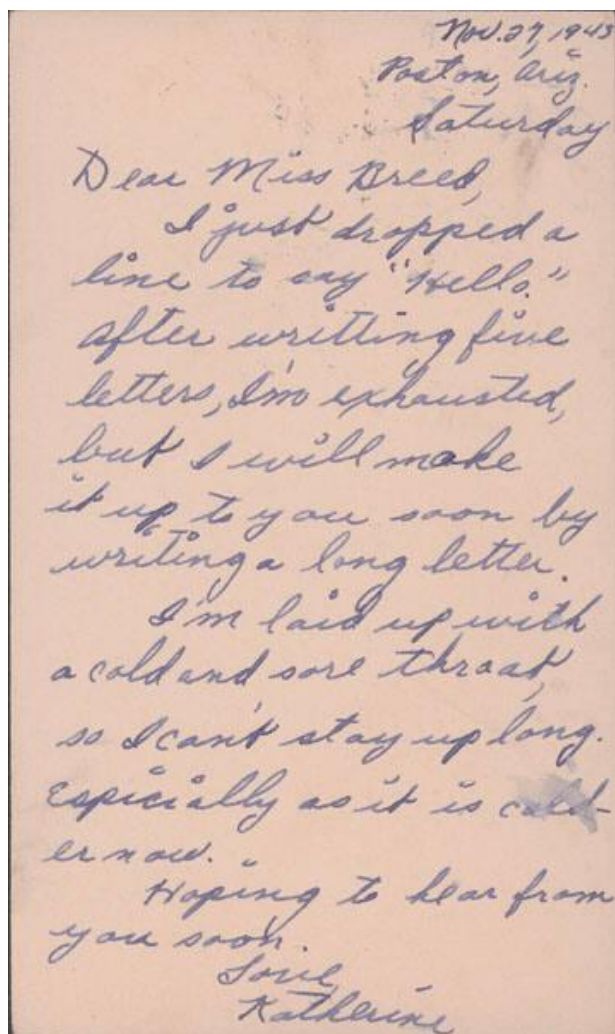 Nov. 27, 1943
Poston, Ariz.
Saturday
Dear Miss Breed,
I just dropped a
line to say "Hello."
After writting five
letters, I'm exhausted,
but I will make
it up to you soon by
writing a long letter.
I'm laid up with
a cold and sore throat,
so I can't stay up long.
Espicially as it is cold-
er now.
Hoping to hear from
you soon.
Love,
Katherine